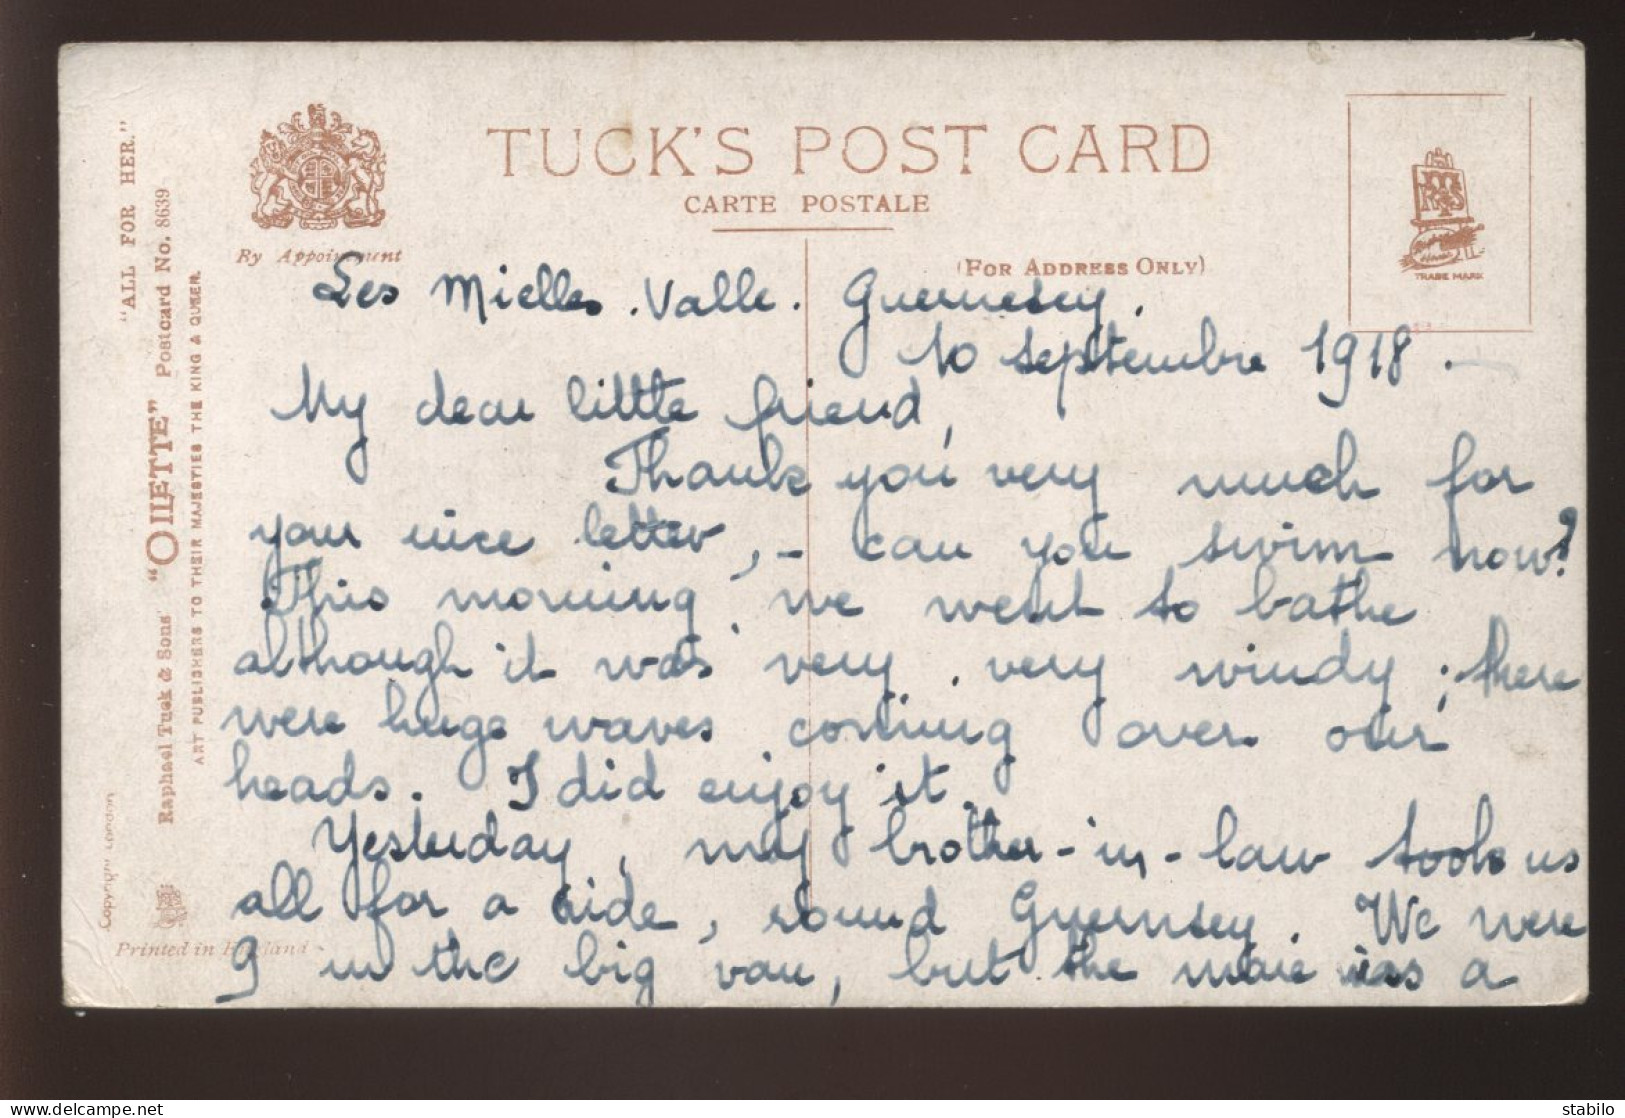 TUCK'S POST CARD
CARTE POSTALE
(FOR ADDRESS ONLY)
By Appointment
TRADE MARK
"ALL FOR HER."
Raphael Tuck & Sons' "OILETTE" Postcard No. 8639
ART PUBLISHERS TO THEIR MAJESTIES THE KING & QUEEN.
Copyright London
Printed in England
Les Mielles. Valle. Guernesey.
10 septembre 1918.
My dear little friend,
Thank you very much for
your nice letter, - can you swim now?
This morning we went to bathe
although it was very, very windy; there
were huge waves coming over our
heads. I did enjoy it.
Yesterday, my brother-in-law took us
all for a ride, round Guernsey. We were
9 in the big van, but the mare was a
stabilo